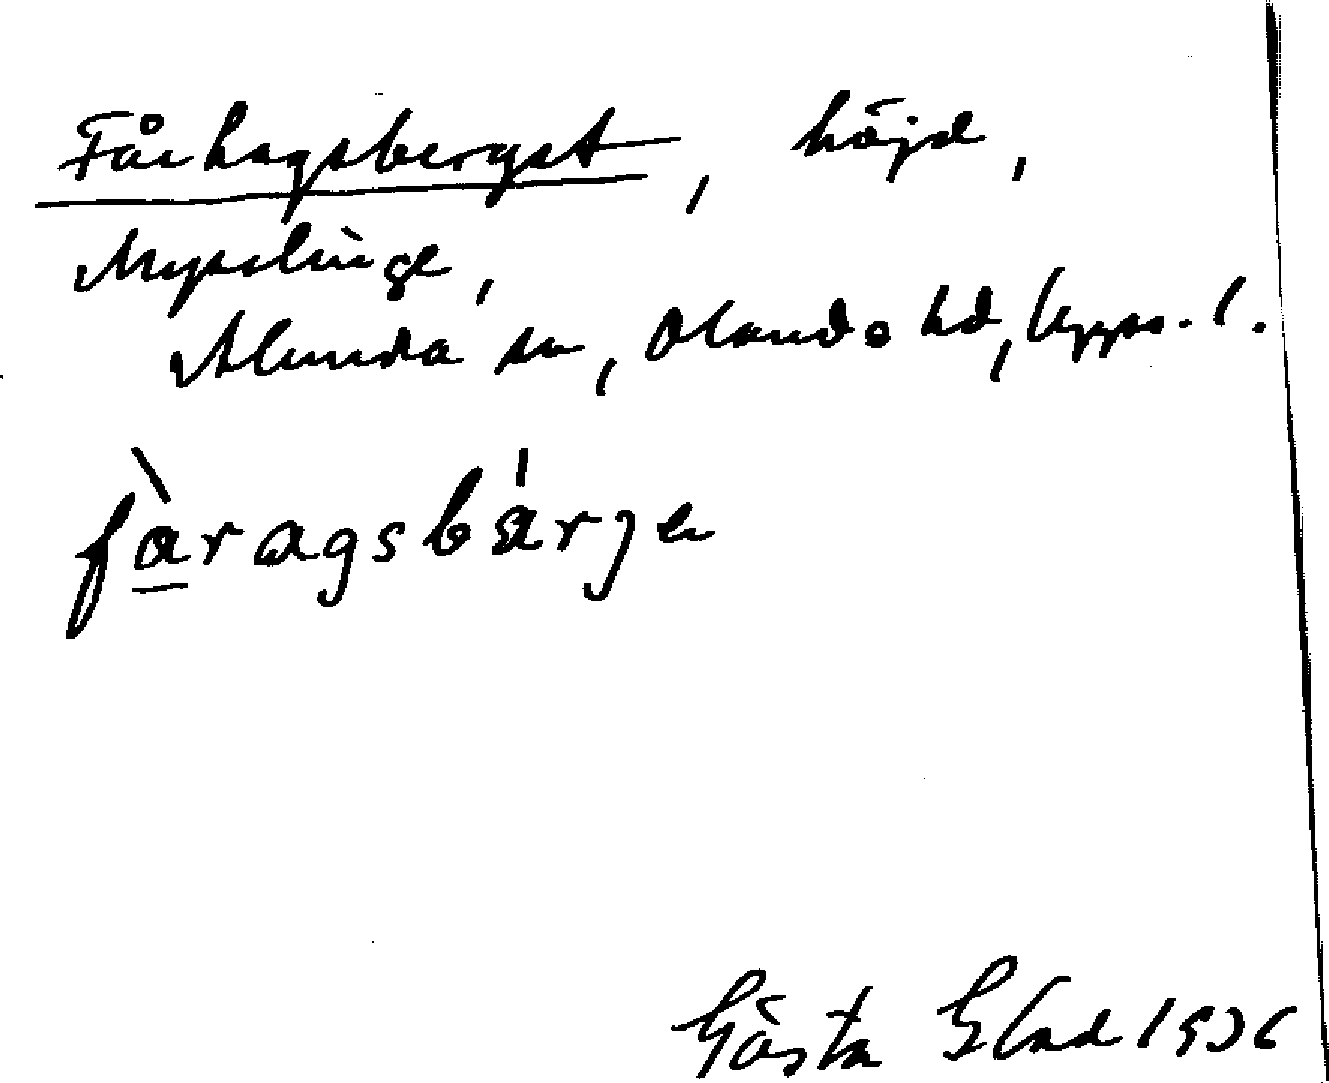 Fårhagsberget, höjd,
Mysslinge,
Alunda sn, Olands hd, Upps. l.
fàragsbárje
Gösta Blad 1936